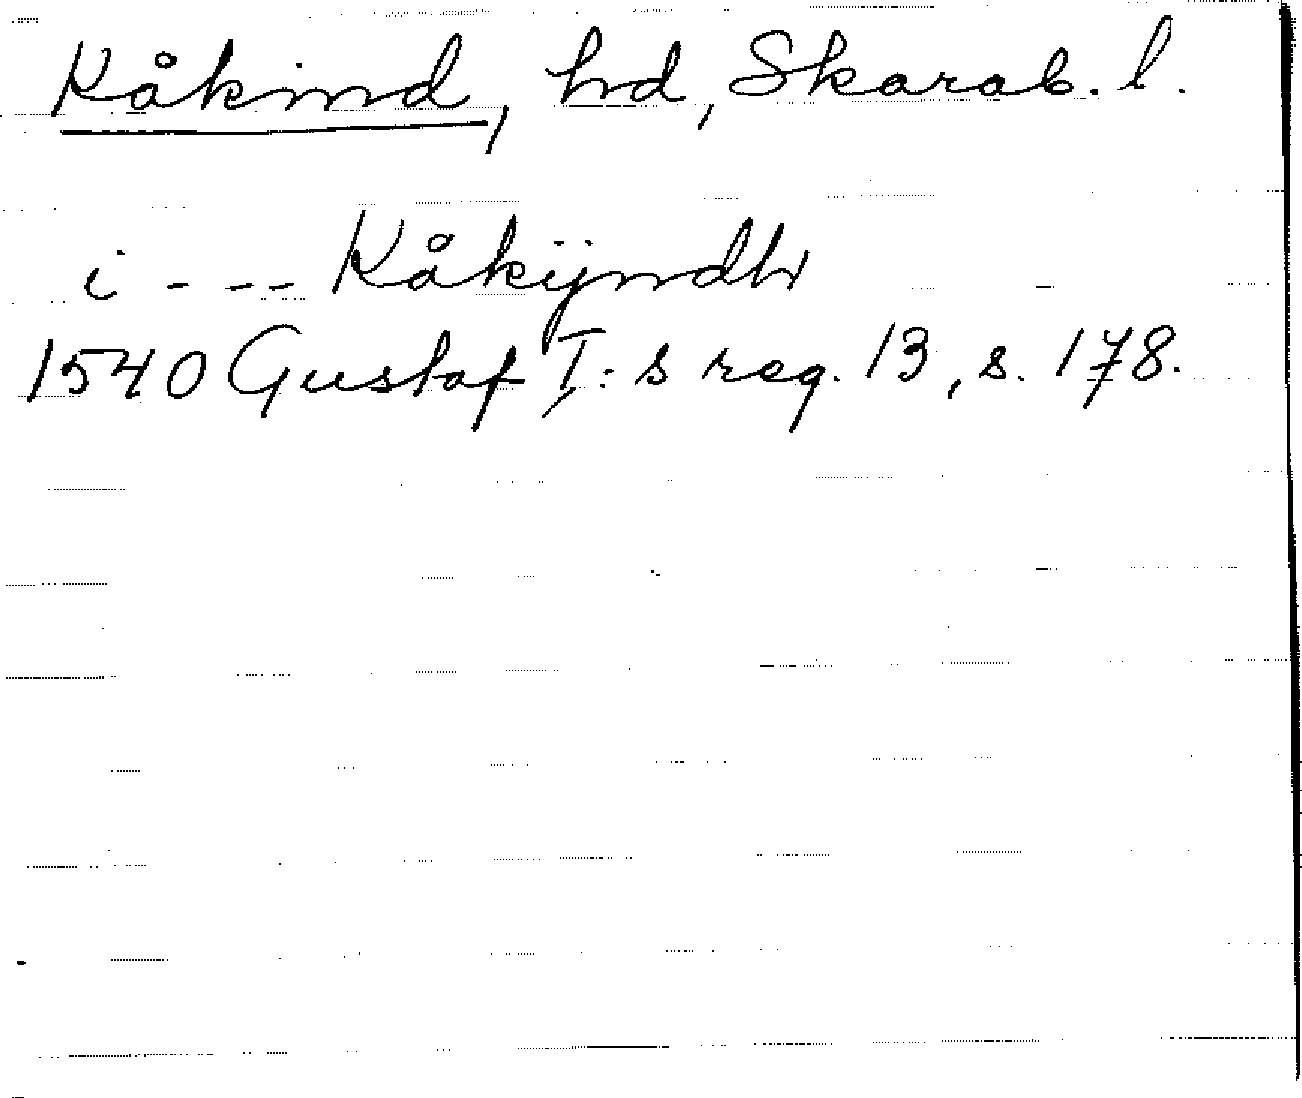 Kåkind, hd, Skarab. l.
i - - - Kåkÿndh
1540 Gustaf I:s reg. 13, s. 178.